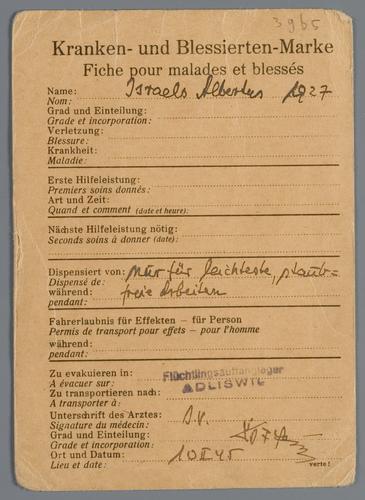 3965
Kranken- und Blessierten-Marke
Fiche pour malades et blessés
Name: Israels Albertus 1927
Nom:
Grad und Einteilung:
Grade et incorporation:
Verletzung:
Blessure:
Krankheit:
Maladie:
Erste Hilfeleistung:
Premiers soins donnés:
Art und Zeit:
Quand et comment (date et heure):
Nächste Hilfeleistung nötig:
Seconds soins à donner (date):
Dispensiert von: nur für leichteste, staub-
Dispensé de:
während: freie Arbeiten
pendant:
Fahrerlaubnis für Effekten – für Person
Permis de transport pour effets – pour l'homme
während:
pendant:
Zu evakuieren in: Flüchtlingsauffanglager
A évacuer sur: ADLISWIL
Zu transportieren nach:
A transporter à:
Unterschrift des Arztes:
Signature du médecin:
Grad und Einteilung:
Grade et incorporation:
Ort und Datum: 10 II 45
Lieu et date:
verte!